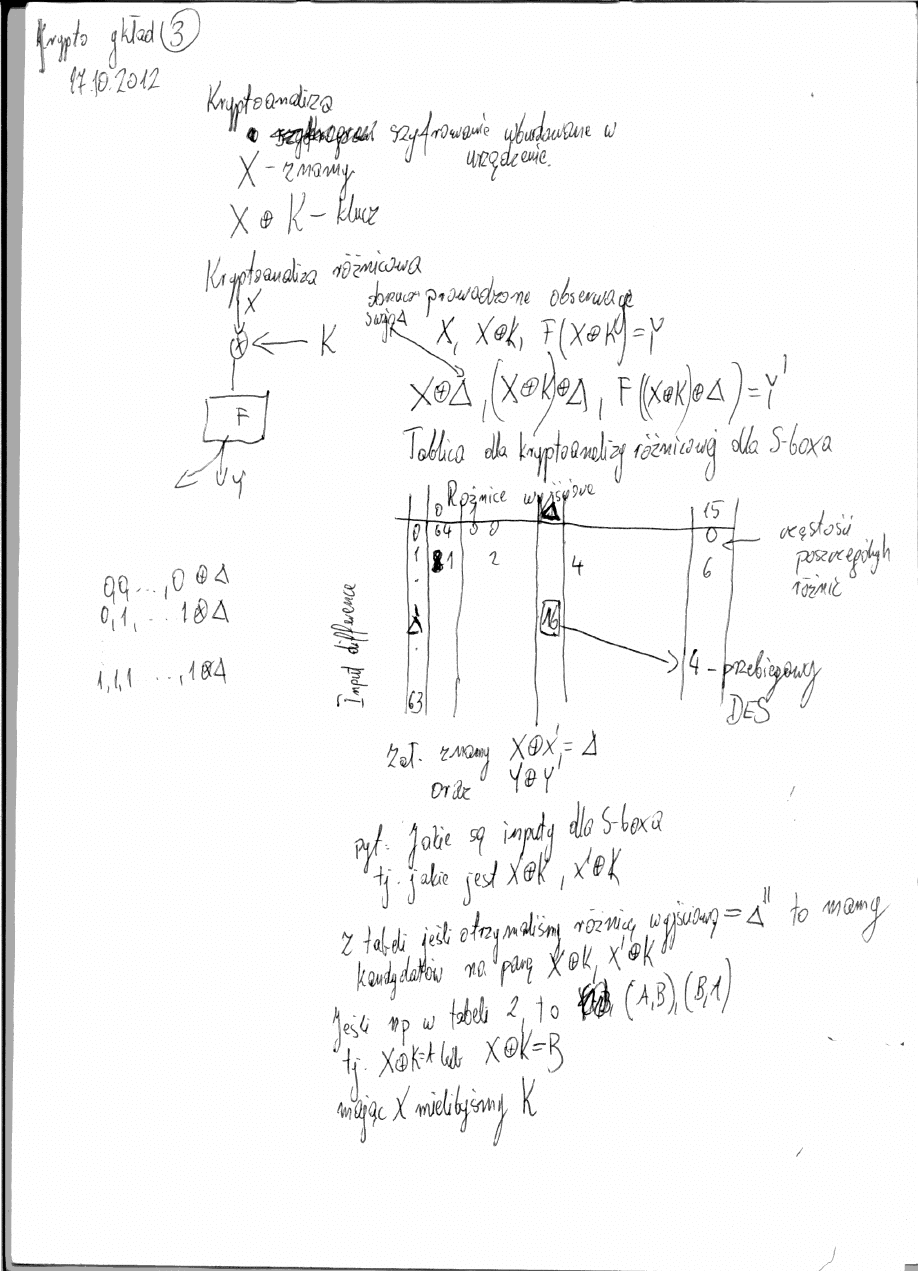 Krypto wykład 3
17.10.2012
Kryptoanaliza
szyfrowanie wbudowane w
urządzenie.
X - znamy
X ⊕ K - klucz
Kryptoanaliza różnicowa
X
K
F
Y
prowadzone obserwacje
X, X⊕K, F(X⊕K)=Y
X⊕Δ, (X⊕K)⊕Δ, F((X⊕K)⊕Δ)=Y'
Tablica dla kryptoanalizy różnicowej dla S-boxa
Różnice wyjściowe
0 Δ 15
0 64 0 0 0
1 1 2 4 6
Δ 16
63
Input difference
częstość
poszczególnych
różnic
4 - przebiegowy
DES
0,0 ..., 0 ⊕ Δ
0,1, ... 1 ⊕ Δ
1,1,1 ..., 1 ⊕ Δ
Zał. znamy X⊕X' = Δ
oraz Y⊕Y'
pyt. Jakie są inputy dla S-boxa
tj. jakie jest X⊕K, X'⊕K
Z tabeli jeśli otrzymaliśmy różnicę wyjściową = Δ'' to mamy
kandydatów na parę X⊕K, X'⊕K
Jeśli np w tabeli 2, to (A,B), (B,A)
tj. X⊕K=A lub X⊕K=B
mając X mielibyśmy K